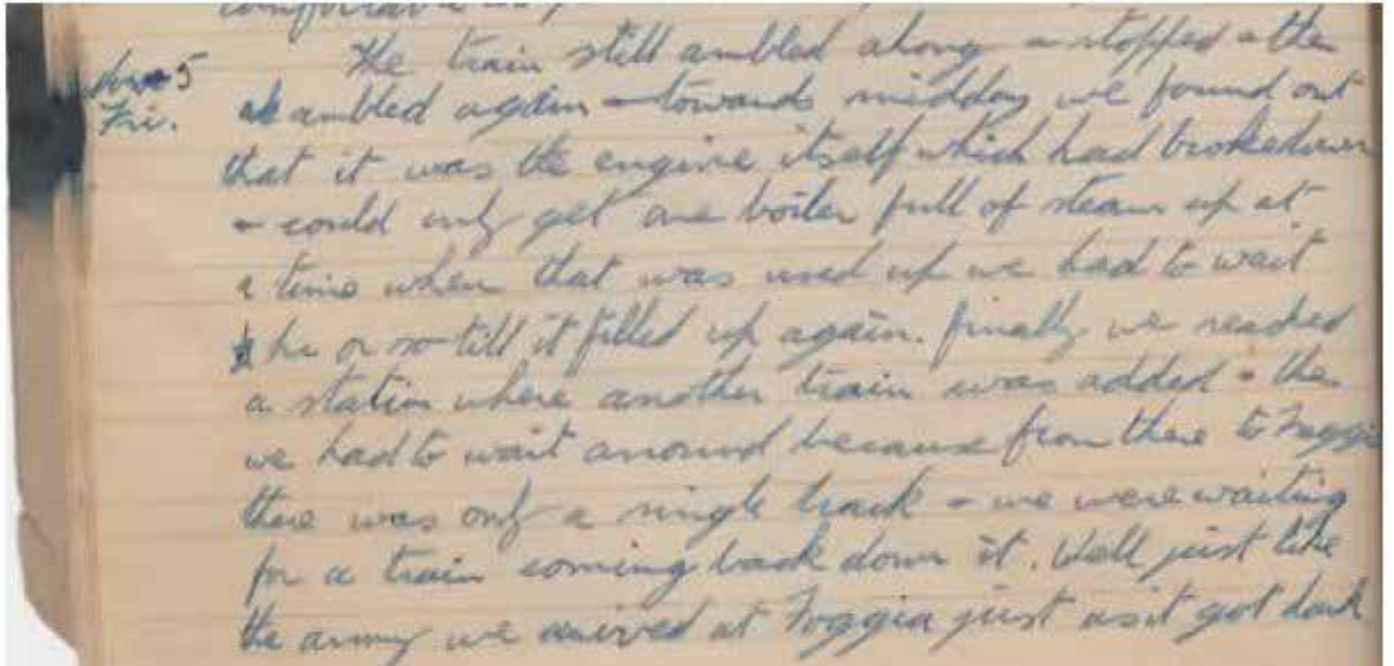 The train still ambled along - stopped - the
Nov 5
Fri. ambled again - towards midday we found out
that it was the engine itself which had brokedown
- could only get one boiler full of steam up at
a time when that was used up we had to wait
hr or so till it filled up again. finally we reached
a station where another train was added - the
we had to wait around because from there to Foggia
there was only a single track - we were waiting
for a train coming back down it. Well just like
the army we arrived at Foggia just as it got dark